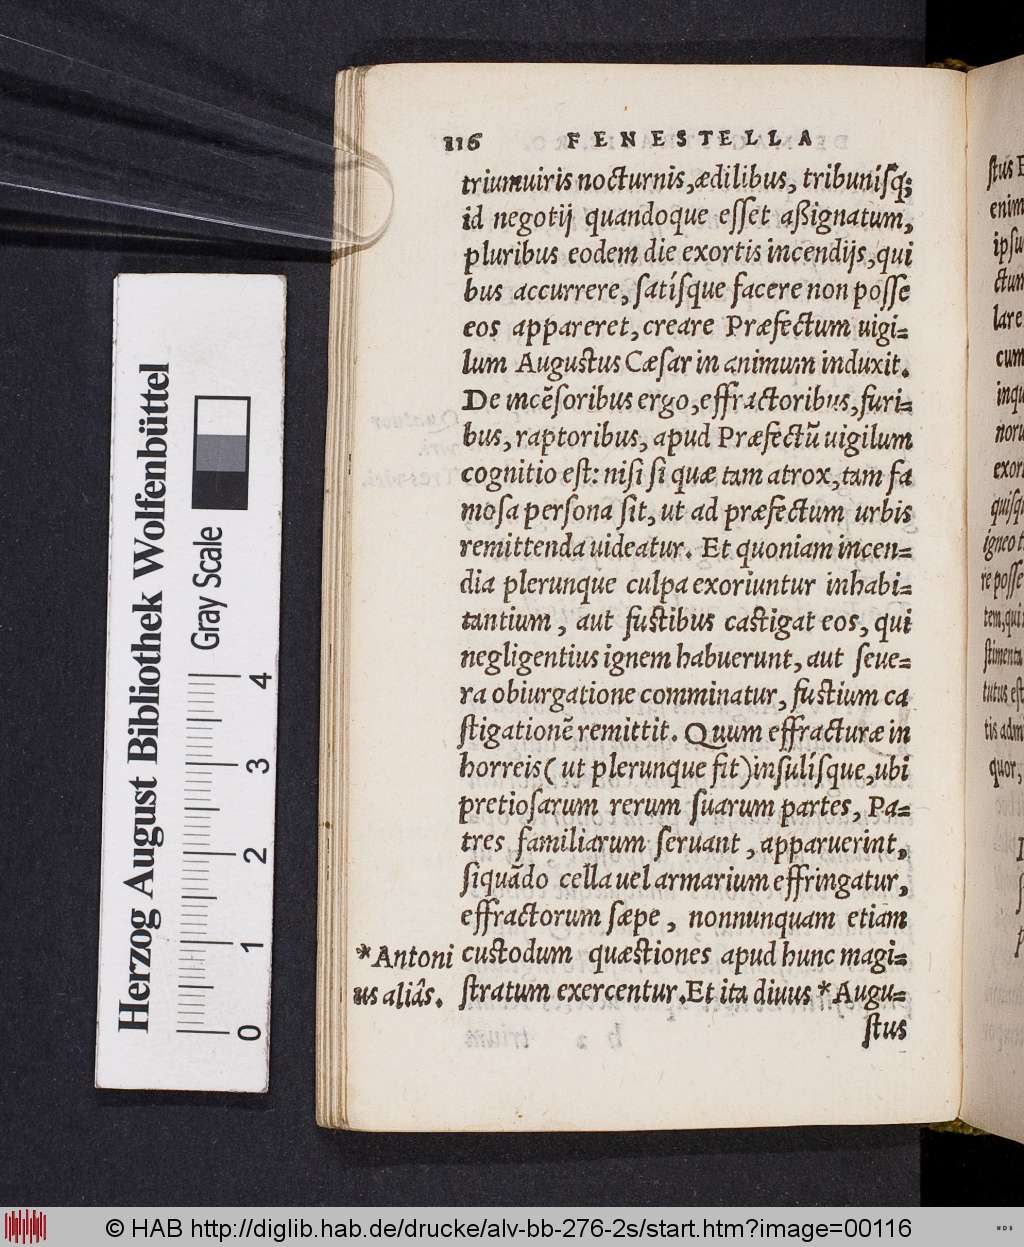 116 FENESTELLA
triumuiris nocturnis, ædilibus, tribunísq;
id negotij quandoque eſſet aßignatum,
pluribus eodem die exortis incendijs, qui
bus accurrere, ſatíſque facere non poſſe
eos appareret, creare Præfectum uigi=
lum Auguſtus Cæſar in animum induxit.
De incẽſoribus ergo, effractoribus, furi=
bus, raptoribus, apud Præfectũ uigilum
cognitio eſt: niſi ſi quæ tam atrox, tam fa
moſa perſona ſit, ut ad præfectum urbis
remittenda uideatur. Et quoniam incen=
dia plerunque culpa exoriuntur inhabi=
tantium, aut fuſtibus caſtigat eos, qui
negligentius ignem habuerunt, aut ſeue=
ra obiurgatione comminatur, fuſtium ca
ſtigationẽ remittit. Quum effracturæ in
horreis (ut plerunque fit) inſulíſque, ubi
pretioſarum rerum ſuarum partes, Pa=
tres familiarum ſeruant, apparuerint,
ſiquãdo cella uel armarium effringatur,
effractorum ſæpe, nonnunquam etiam
cuſtodum quæſtiones apud hunc magi=
ſtratum exercentur. Et ita diuus *Augu=
ſtus
*Antoni
us aliâs.
ſtus
enim
ipſu
ctum
lare
cum
inqu
noru
exor
quiſq
igneo t
re poſſe
tem, qui
ſtimenta
tutus eſt
tis adm
quor,
Herzog August Bibliothek Wolfenbüttel
Gray Scale
0 1 2 3 4
© HAB http://diglib.hab.de/drucke/alv-bb-276-2s/start.htm?image=00116